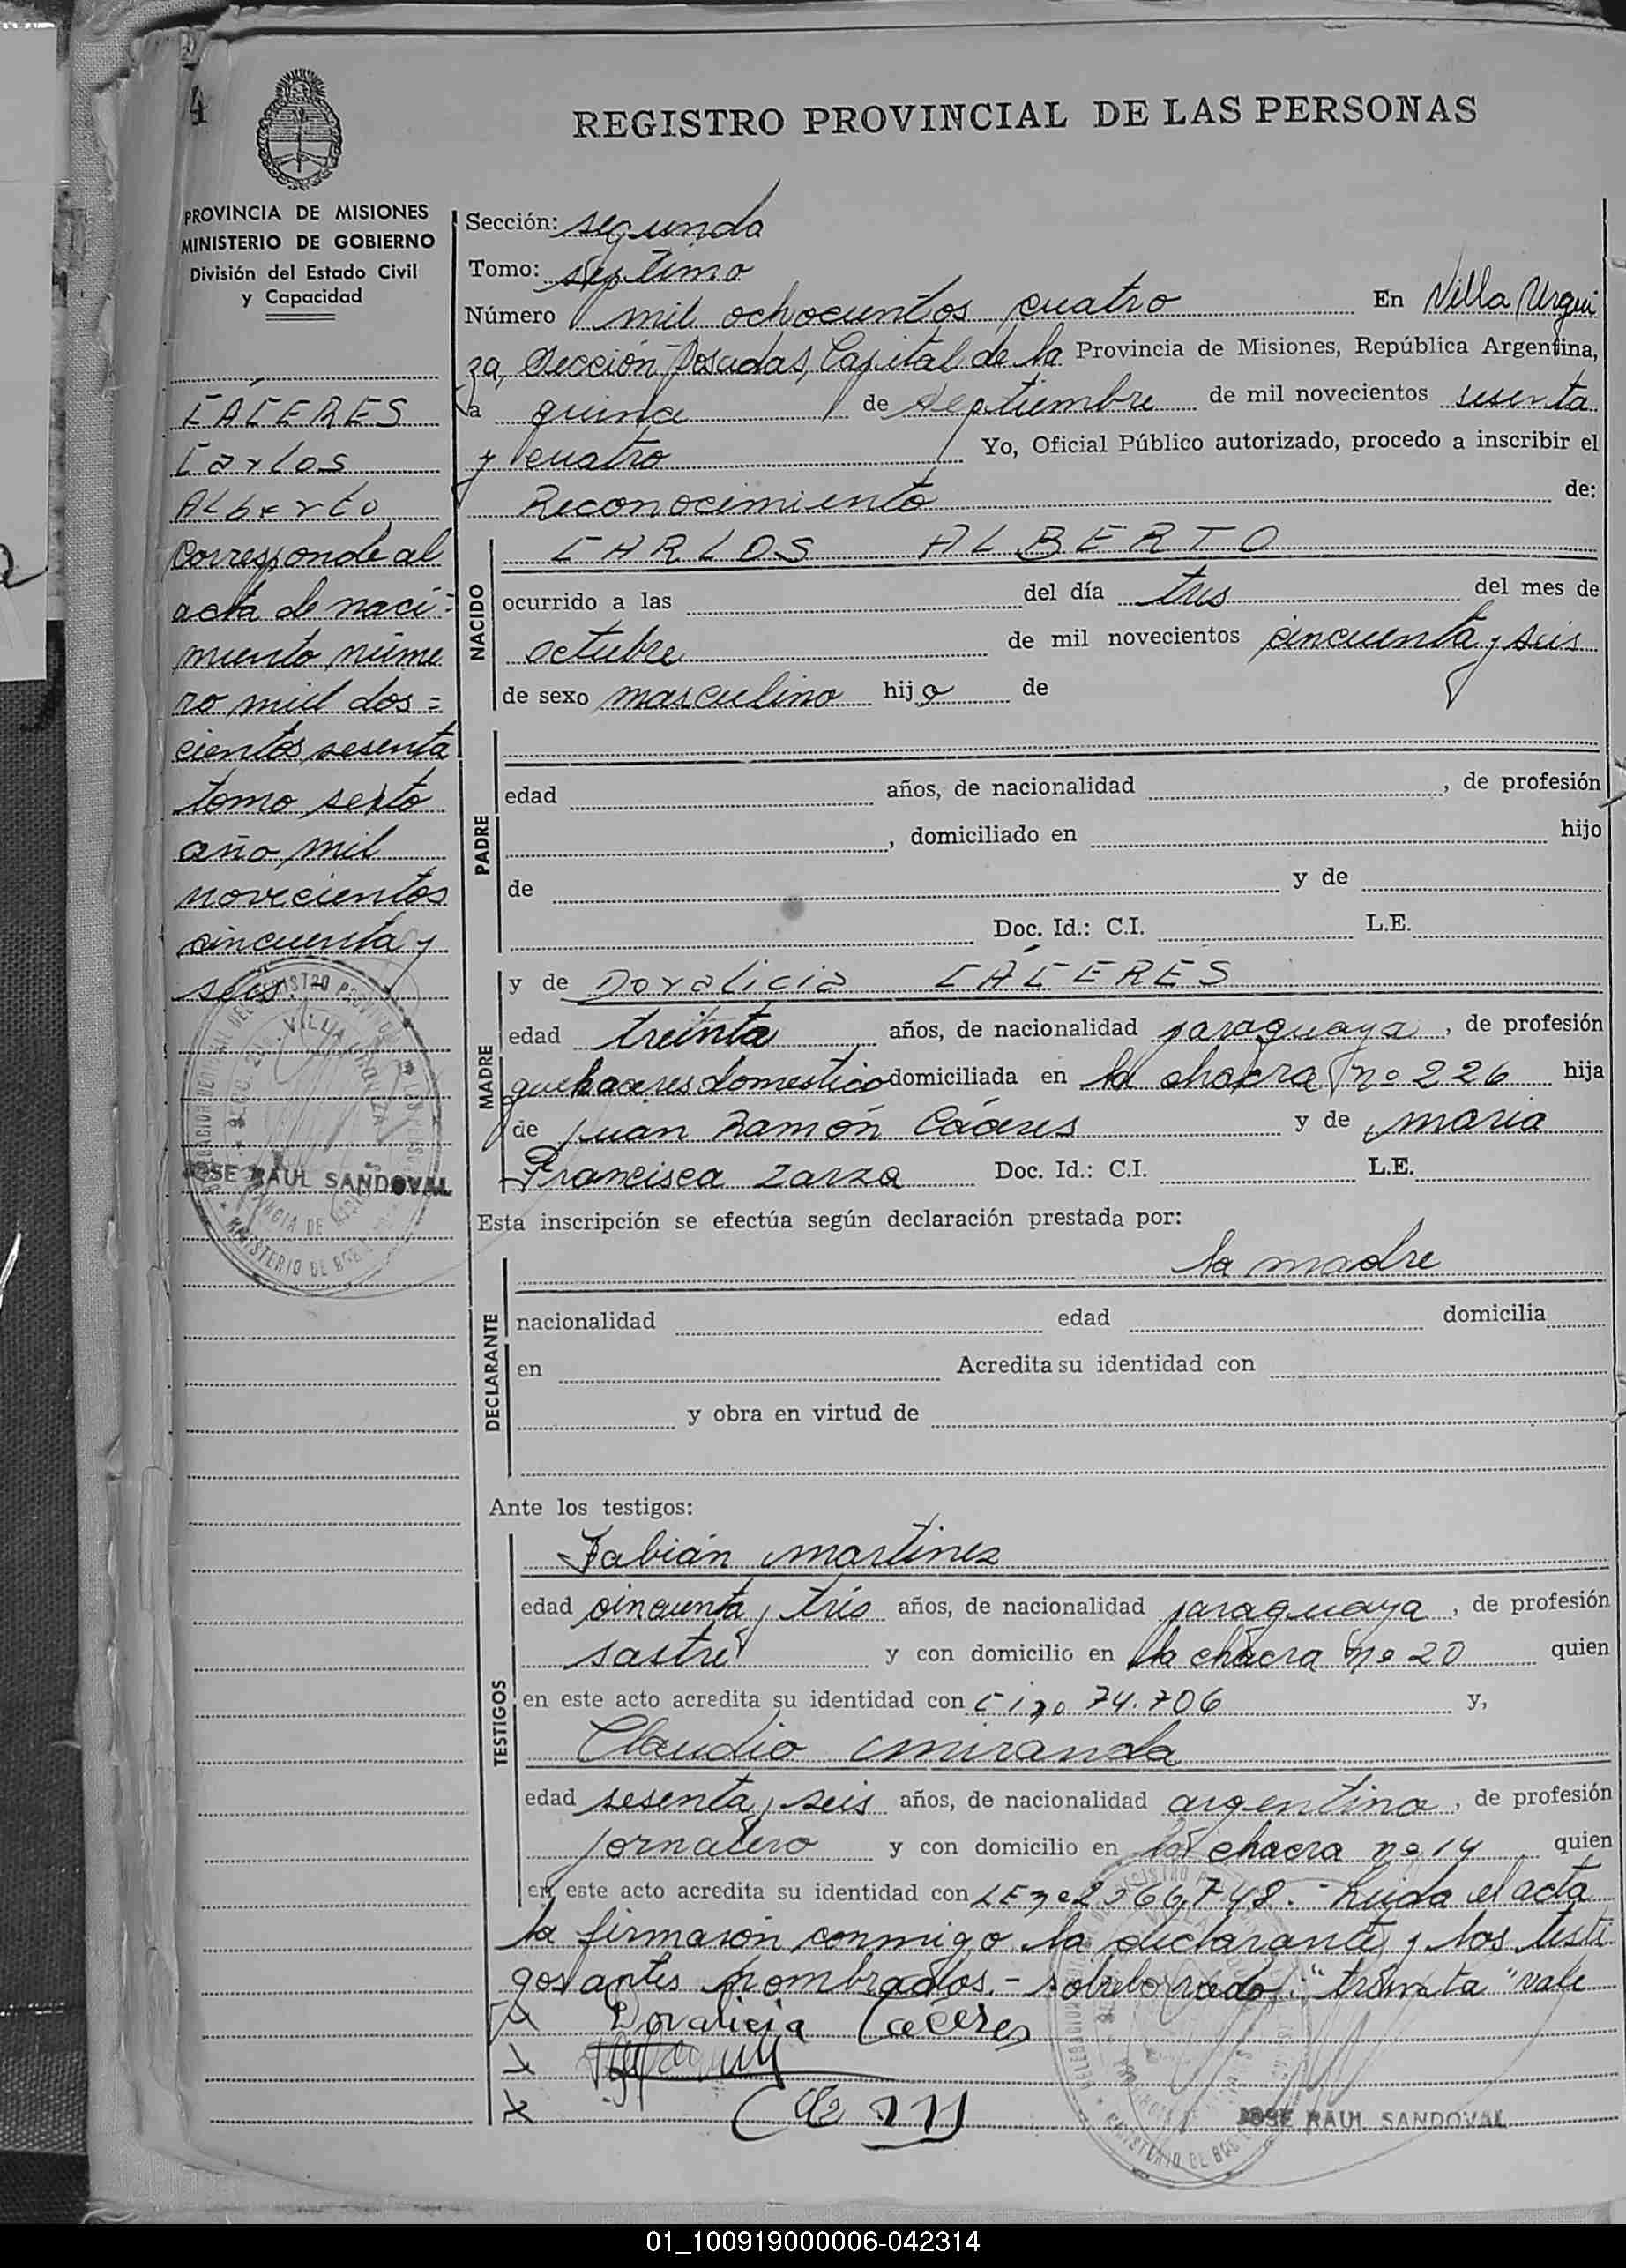 4
REGISTRO PROVINCIAL DE LAS PERSONAS
PROVINCIA DE MISIONES
MINISTERIO DE GOBIERNO
División del Estado Civil
y Capacidad
CÁCERES
Carlos
Alberto
Corresponde al
acta de naci-
miento núme
ro mil dos=
cientos sesenta
tomo sexto
año mil
novecientos
cincuenta y
seis.
VILLA URQUIZA
JOSE RAUL SANDOVAL
Sección: segunda
Tomo: septimo
Número mil ochocientos cuatro En Villa Urqui
za, Sección Posadas, Capital de la Provincia de Misiones, República Argentina,
a quince de Septiembre de mil novecientos sesenta
y cuatro Yo, Oficial Público autorizado, procedo a inscribir el
Reconocimiento de:
NACIDO
CARLOS ALBERTO
ocurrido a las del día tres del mes de
octubre de mil novecientos cincuenta y seis
de sexo masculino hijo de
PADRE
edad años, de nacionalidad , de profesión
, domiciliado en hijo
de y de
Doc. Id.: C.I. L.E.
MADRE
y de Doralicia CÁCERES
edad treinta años, de nacionalidad paraguaya, de profesión
quehaceres domestico domiciliada en la chacra nº 226 hija
de Juan Ramón Cáceres y de maria
Francisca Zarza Doc. Id.: C.I. L.E.
Esta inscripción se efectúa según declaración prestada por:
DECLARANTE
la madre
nacionalidad edad domicilia
en Acredita su identidad con
y obra en virtud de
Ante los testigos:
TESTIGOS
Fabián martinez
edad cincuenta y tres años, de nacionalidad paraguaya, de profesión
sastre y con domicilio en la chacra nº 20 quien
en este acto acredita su identidad con C i nº 74.706 y,
Claudio miranda
edad sesenta y seis años, de nacionalidad argentina, de profesión
jornalero y con domicilio en la chacra nº 14 quien
en este acto acredita su identidad con LE nº 2566,748.- Leida el acta
la firmaron conmigo la declarante y los testi
gos antes nombrados.- sobreborrado: "treinta" vale
Doralicia Caceres
JOSE RAUL SANDOVAL
01_100919000006-042314